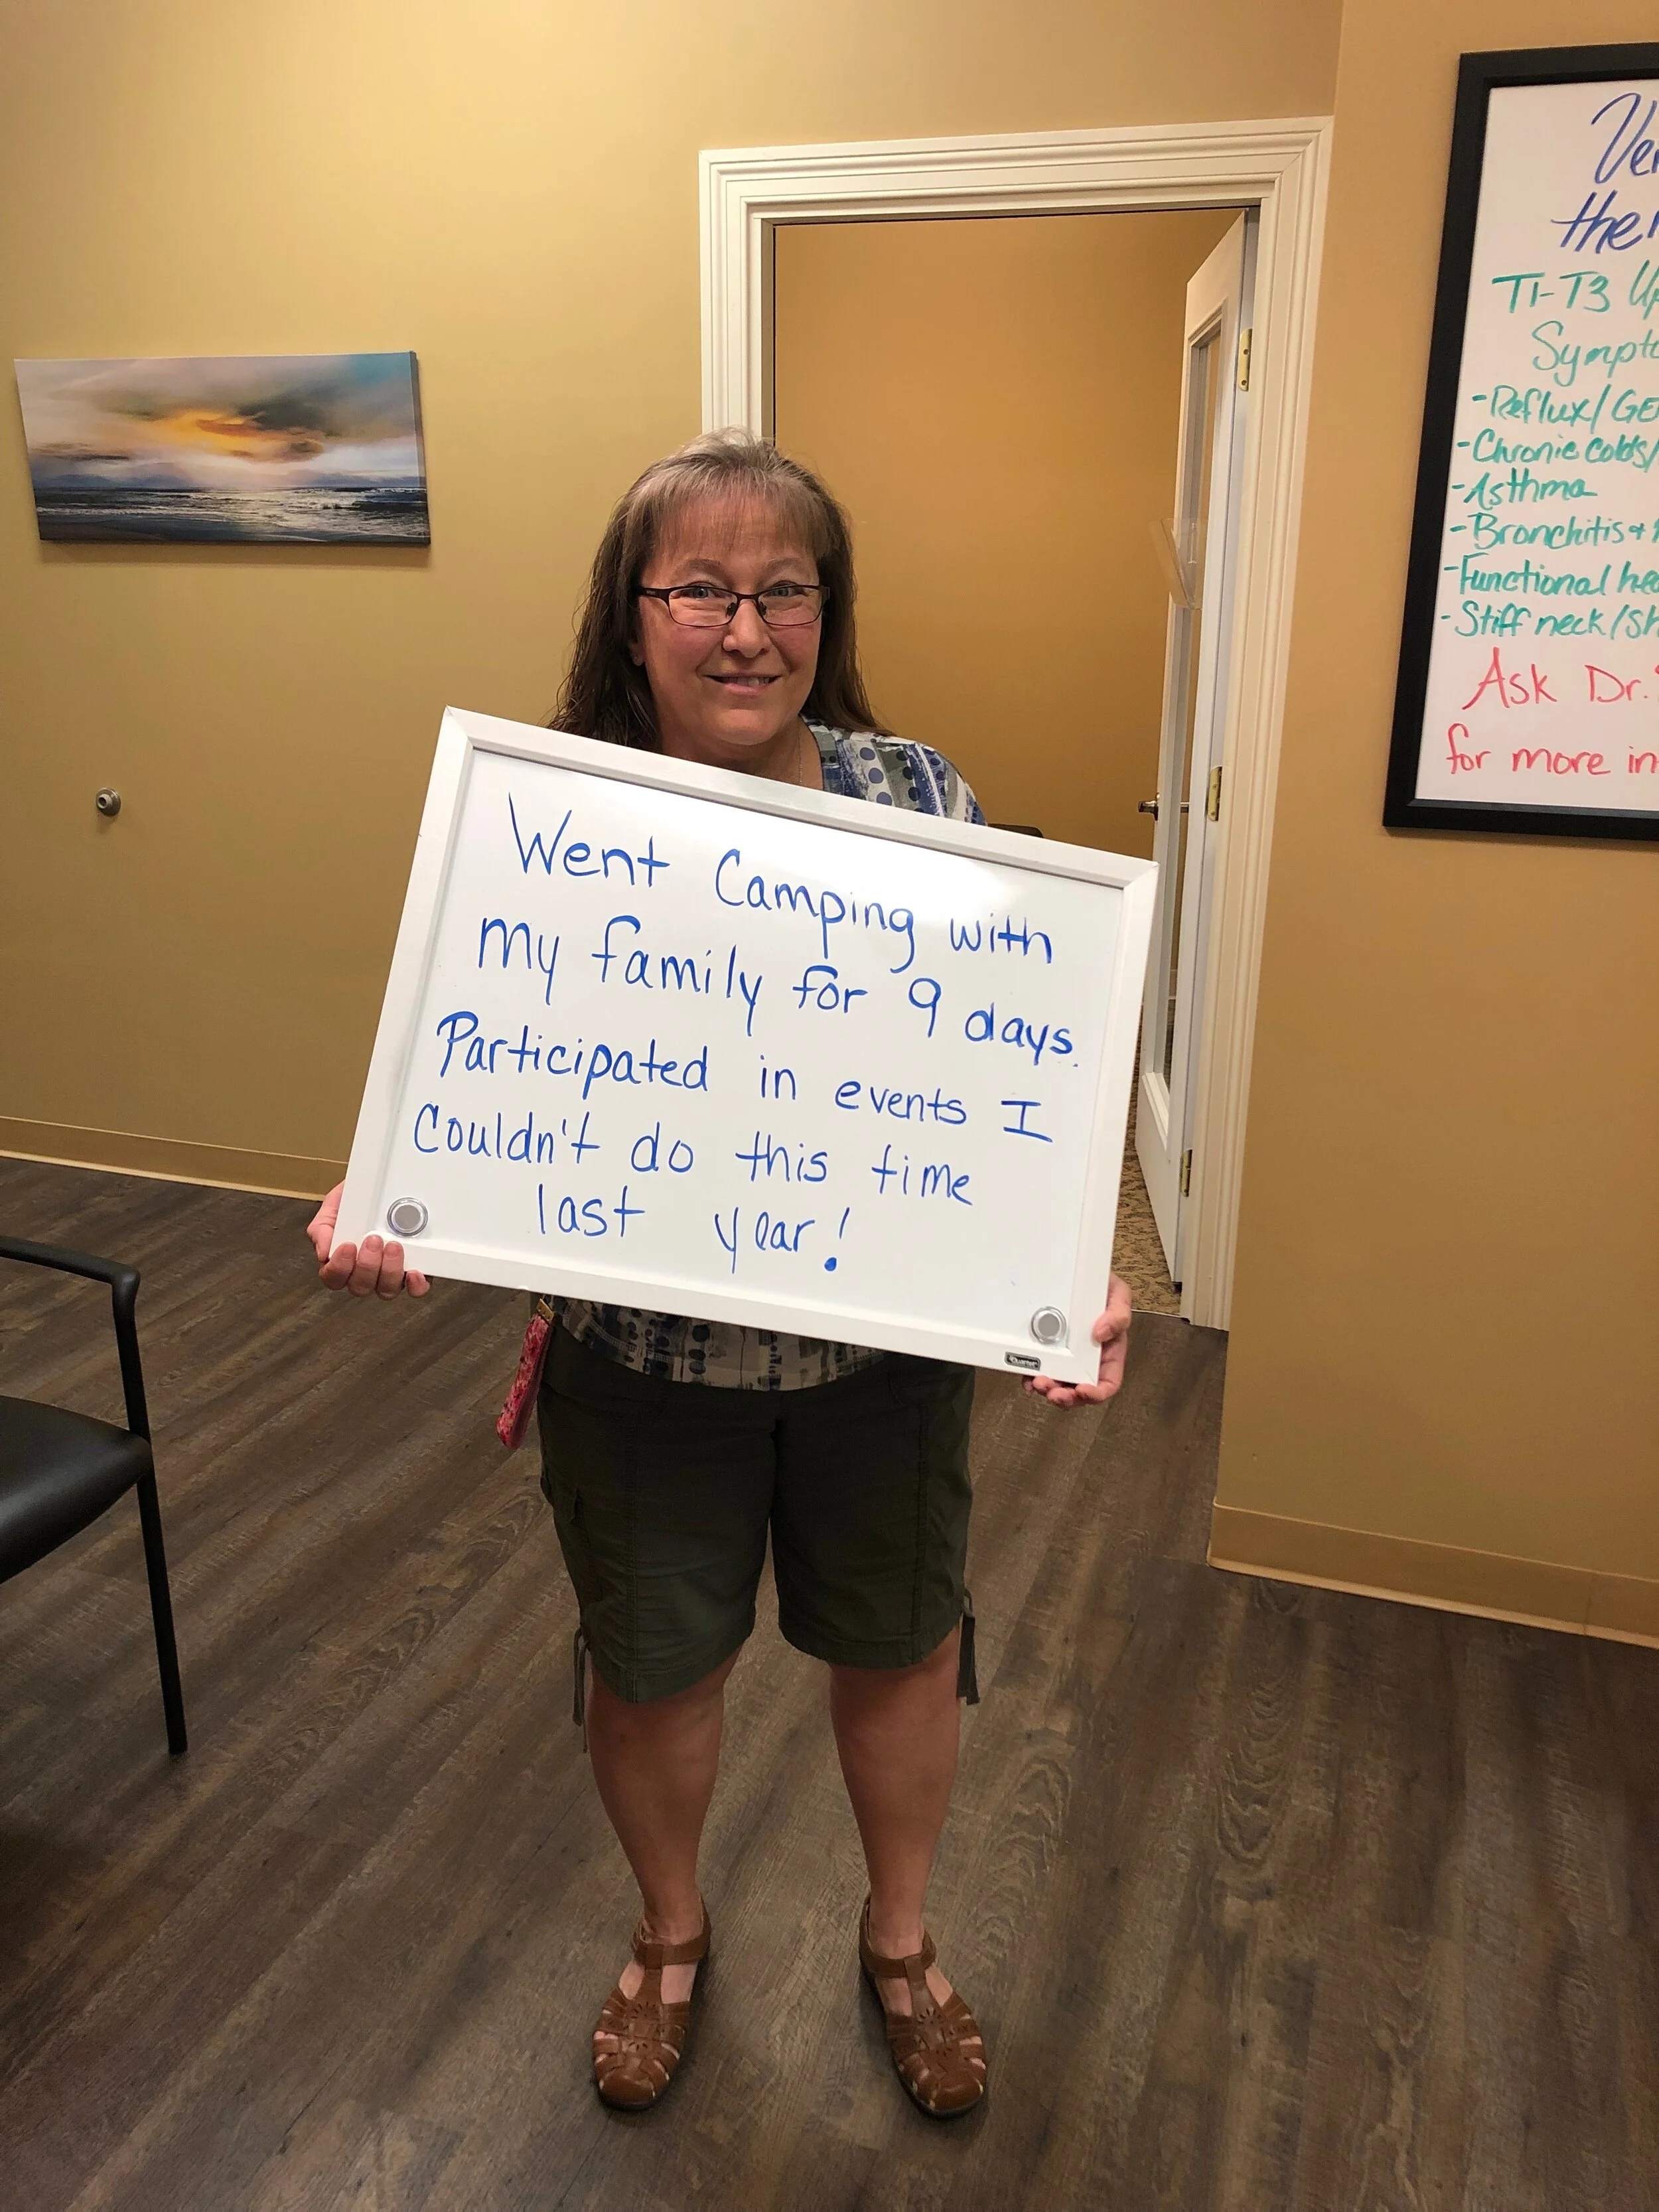 Went Camping with
my family for 9 days.
Participated in events I
Couldn't do this time
last year!
Quartet
T1-T3
- Reflux/
- Chronic colds/
- Asthma
- Bronchitis +
- Functional
- Stiff neck/
Ask Dr.
for more